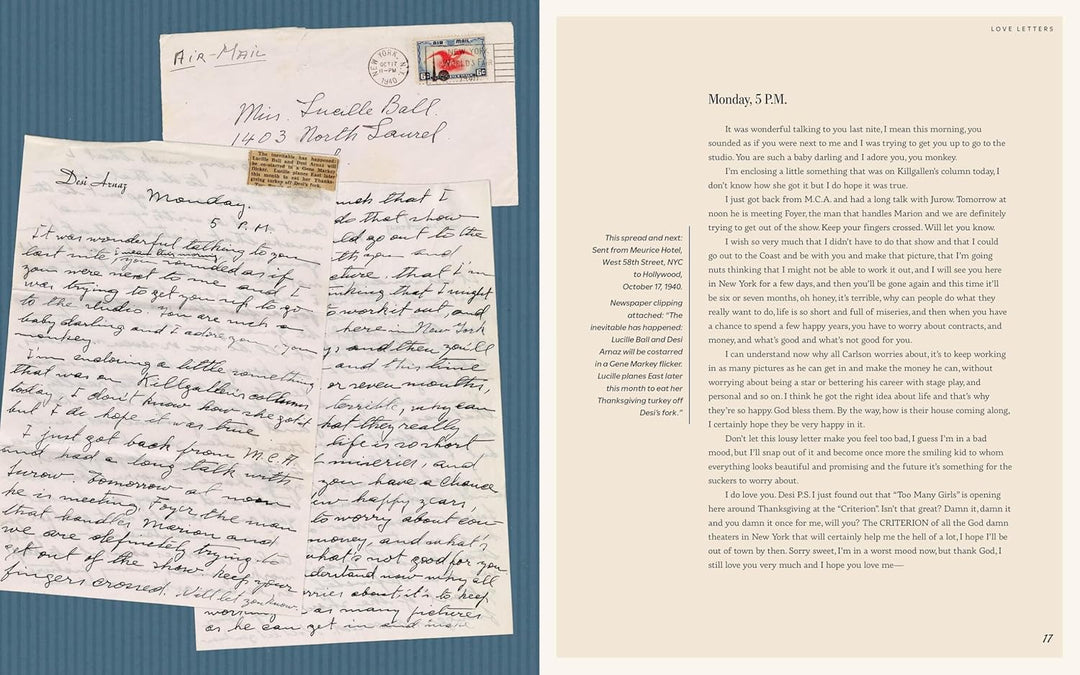 AIR-MAIL
NEW YORK, N.Y.
OCT 17
11-PM
1940
AIR MAIL
NEW YORK
WORLD'S FAIR
6c 6c
Miss. Lucille Ball.
1403 North Laurel
The inevitable has happened:
Lucille Ball and Desi Arnaz will
be co-starred in a Gene Markey
flicker. Lucille planes East later
this month to eat her Thanks-
giving turkey off Desi's fork.
Desi Arnaz
Monday.
5 P.M.
It was wonderful talking to you
last nite, I mean this morning, you sounded as if
you were next to me and I
was trying to get you up to go
to the studio. You are such a
baby darling and I adore you, you
monkey.
I'm enclosing a little something
that was on Killgallen's column,
today, I don't know how she got it
but I do hope it was true.
I just got back from M.C.A.
and had a long talk with
Jurow. Tomorrow at noon
he is meeting Foyer the man
that handles Marion and
we are definitely trying to
get out of the show keep your
fingers crossed. Will let you know.
much that I
do that show
ld go out to the
th you and
cture, that I'm
nking that I might
to work it out, and
here in New York
ys and then you'll
and this time
or seven months,
terrible, why can
hat they really
life is so short
miseries, and
you have a chance
ew happy years,
to worry about con
money, and what's
what's not good for you.
derstand now why all
rries about it's to keep
working in as many pictures
as he can get in and make
LOVE LETTERS
Monday, 5 P.M.
It was wonderful talking to you last nite, I mean this morning, you
sounded as if you were next to me and I was trying to get you up to go to the
studio. You are such a baby darling and I adore you, you monkey.
I'm enclosing a little something that was on Killgallen's column today, I
don't know how she got it but I do hope it was true.
I just got back from M.C.A. and had a long talk with Jurow. Tomorrow at
noon he is meeting Foyer, the man that handles Marion and we are definitely
trying to get out of the show. Keep your fingers crossed. Will let you know.
I wish so very much that I didn't have to do that show and that I could
go out to the Coast and be with you and make that picture, that I'm going
nuts thinking that I might not be able to work it out, and I will see you here
in New York for a few days, and then you'll be gone again and this time it'll
be six or seven months, oh honey, it's terrible, why can people do what they
really want to do, life is so short and full of miseries, and then when you have
a chance to spend a few happy years, you have to worry about contracts, and
money, and what's good and what's not good for you.
I can understand now why all Carlson worries about, it's to keep working
in as many pictures as he can get in and make the money he can, without
worrying about being a star or bettering his career with stage play, and
personal and so on. I think he got the right idea about life and that's why
they're so happy. God bless them. By the way, how is their house coming along,
I certainly hope they be very happy in it.
Don't let this lousy letter make you feel too bad, I guess I'm in a bad
mood, but I'll snap out of it and become once more the smiling kid to whom
everything looks beautiful and promising and the future it's something for the
suckers to worry about.
I do love you. Desi P.S. I just found out that "Too Many Girls" is opening
here around Thanksgiving at the "Criterion". Isn't that great? Damn it, damn it
and you damn it once for me, will you? The CRITERION of all the God damn
theaters in New York that will certainly help me the hell of a lot, I hope I'll be
out of town by then. Sorry sweet, I'm in a worst mood now, but thank God, I
still love you very much and I hope you love me—
This spread and next:
Sent from Meurice Hotel,
West 58th Street, NYC
to Hollywood,
October 17, 1940.
Newspaper clipping
attached: "The
inevitable has happened:
Lucille Ball and Desi
Arnaz will be costarred
in a Gene Markey flicker.
Lucille planes East later
this month to eat her
Thanksgiving turkey off
Desi's fork."
17